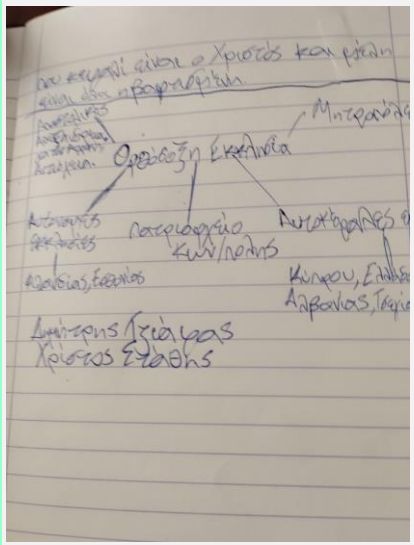 που κεφαλή είναι ο Χριστός και μέλη
είναι όλοι η βαφτισμένοι.
Μητροπόλε
Ορθόδοξη Εκκλησία
Αυτόνομες
εκκλησίες
Πατριαρχείο
Κων/πολης
Αυτοκέφαλες
Φιλανδίας, Εσθονίας
Κύπρου, Ελλάδο
Αλβανίας, Τσεχία
Δημήτρης Τζιάφας
Χρίστος Στάθης